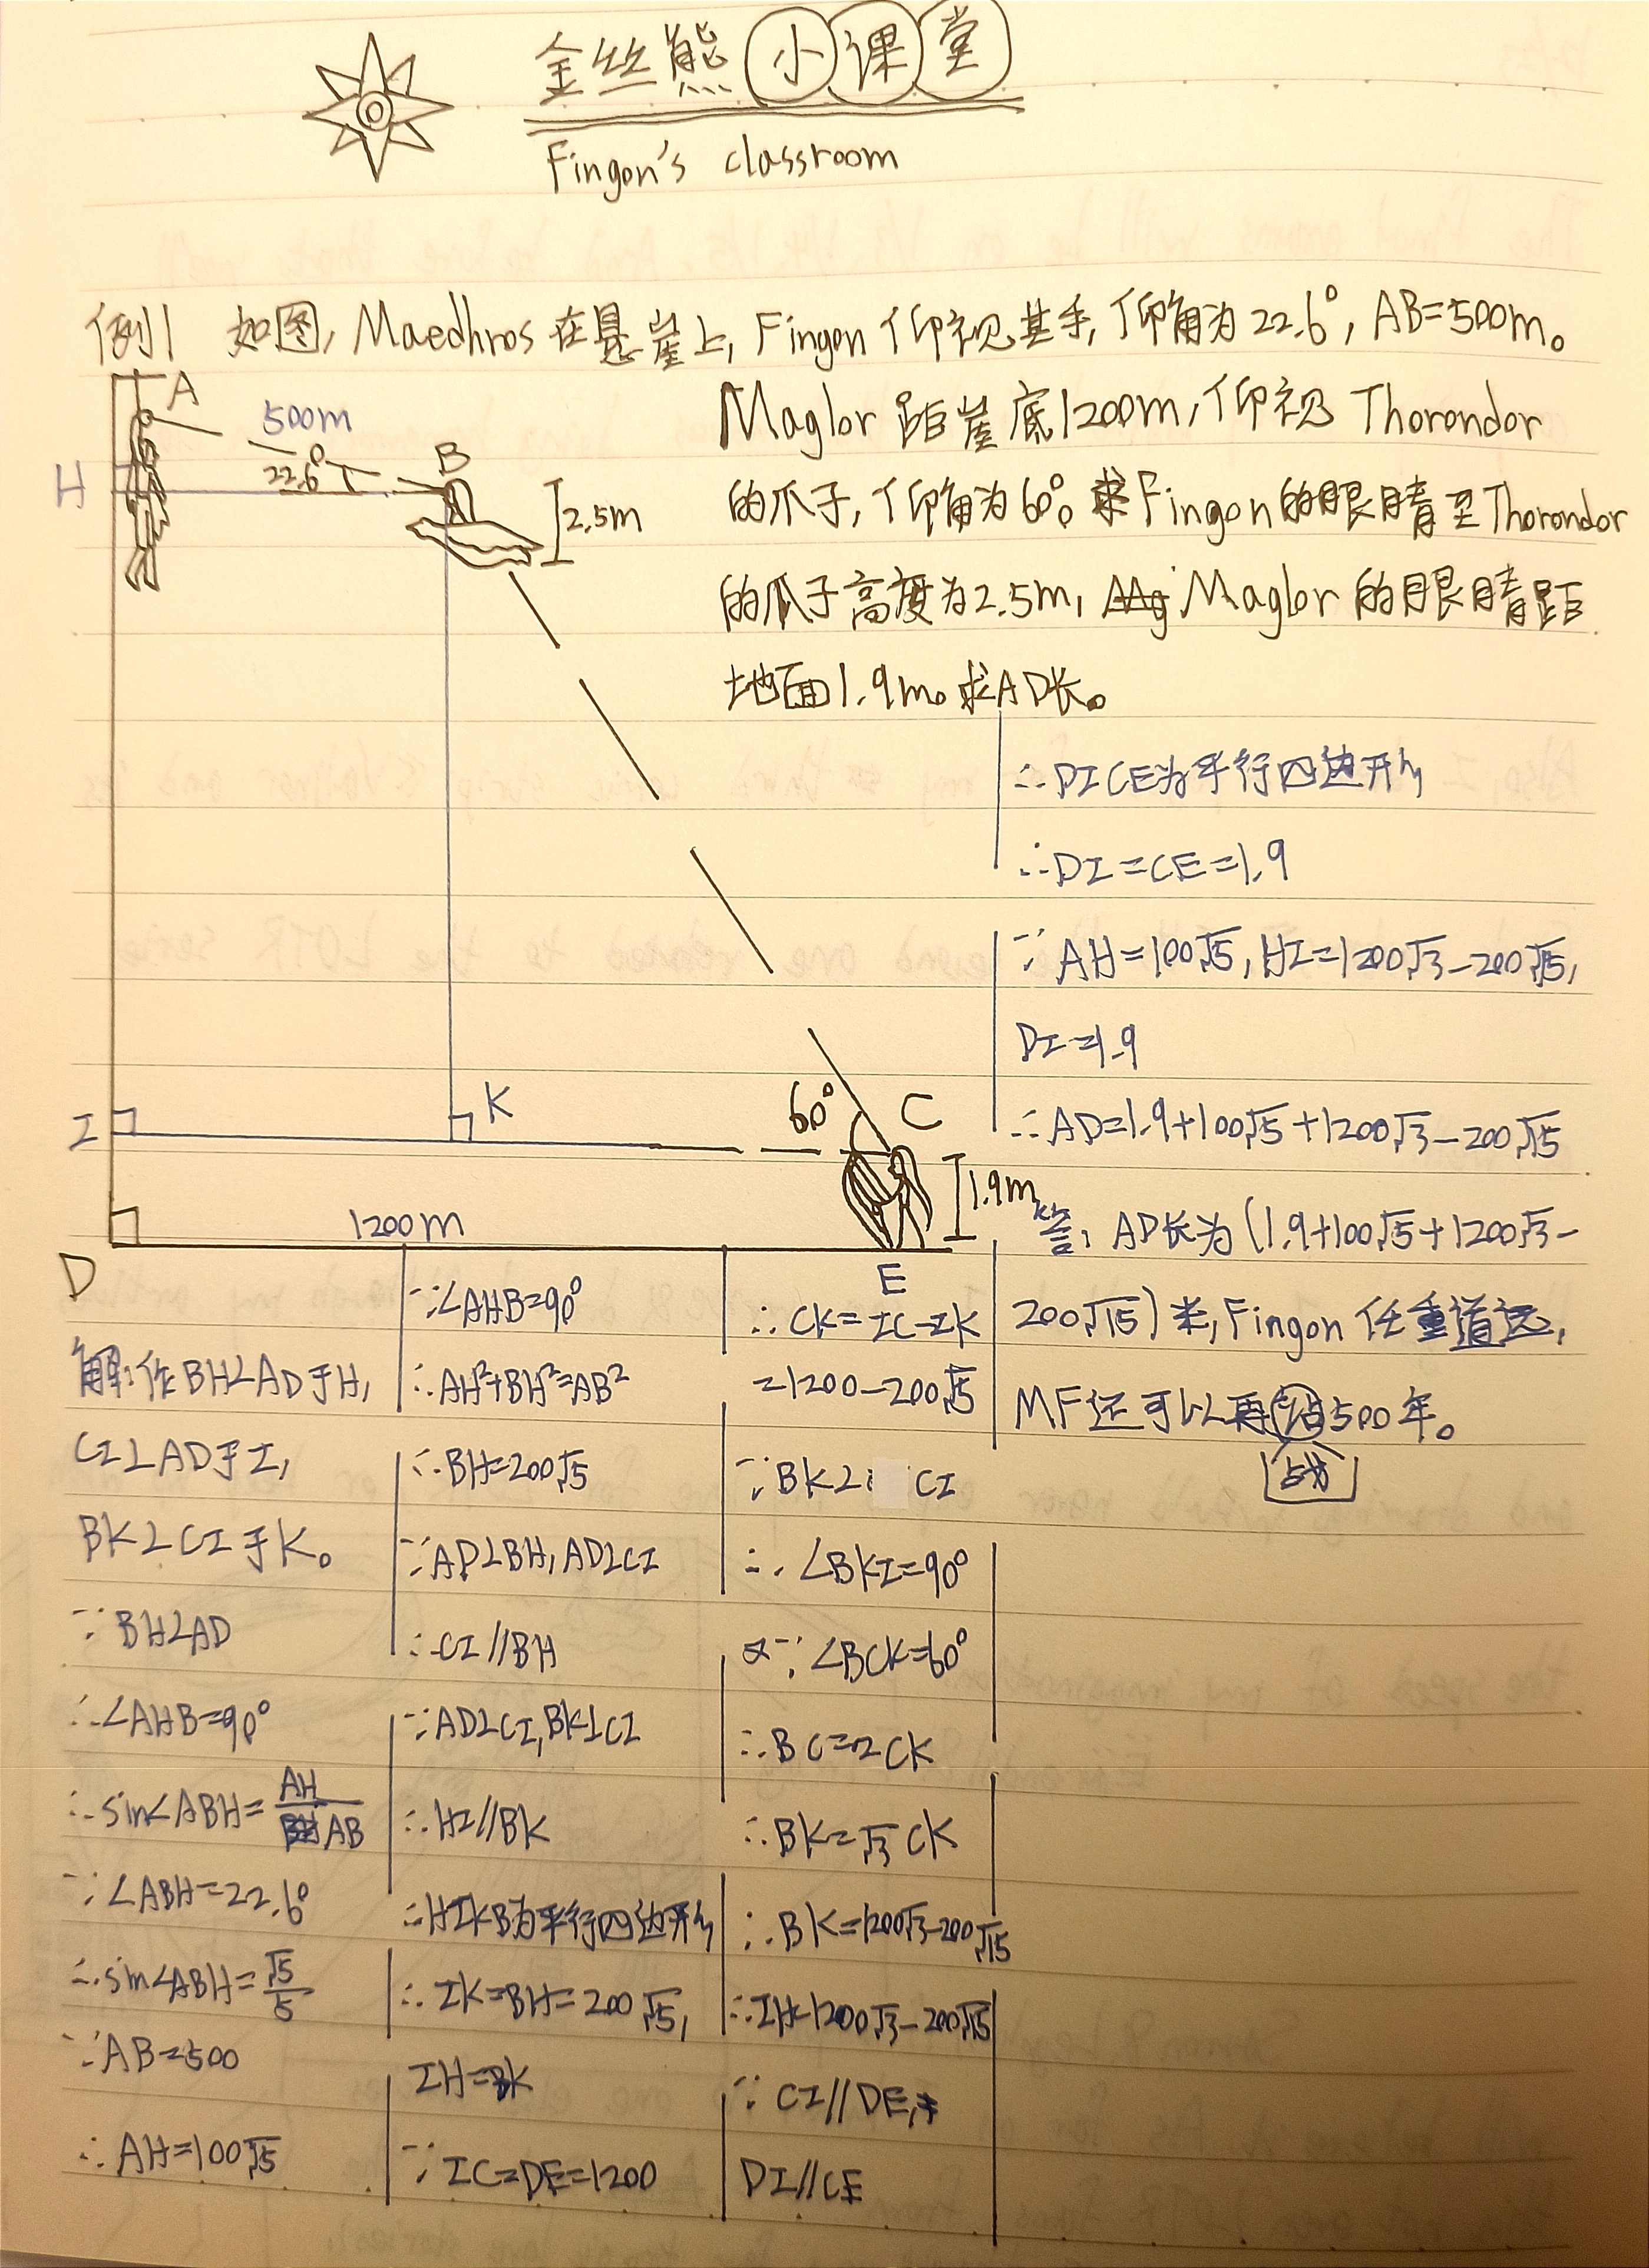 金丝熊小课堂
Fingon's classroom
例1 如图, Maedhros在悬崖上, Fingon仰视其手, 仰角为22.6°, AB=500m。
Maglor距崖底1200m, 仰视 Thorondor
的爪子, 仰角为60°。Fingon的眼睛至Thorondor
的爪子高度为2.5m, Maglor的眼睛距
地面1.9m。求AD长。
A
500m
22.6°
B
H
2.5m
60°
C
K
I
1.9m
1200m
D
E
解:作BH⊥AD于H,
CI⊥AD于I,
BK⊥CI于K。
∵BH⊥AD
∴∠AHB=90°
∴sin∠ABH=AH/AB
∵∠ABH=22.6°
∴sin∠ABH=√5/5
∵AB=500
∴AH=100√5
∵∠AHB=90°
∴AH²+BH²=AB²
∴BH=200√5
∵AD⊥BH, AD⊥CI
∴CI//BH
∵AD⊥CI, BK⊥CI
∴HI//BK
∴HIKB为平行四边形
∴IK=BH=200√5,
IH=BK
∵IC=DE=1200
∴CK=IC-IK
=1200-200√5
∵BK⊥CI
∴∠BKI=90°
∵∠BCK=60°
∴BC=2CK
∴BK=√3CK
∴BK=1200√3-200√15
∴IH=1200√3-200√15
∵CI//DE,
DI//CE
∴DICE为平行四边形
∴DI=CE=1.9
∵AH=100√5, HI=1200√3-200√15,
DI=1.9
∴AD=1.9+100√5+1200√3-200√15
答: AD长为(1.9+100√5+1200√3-
200√15)米, Fingon任重道远,
MF还可以再站500年。
战